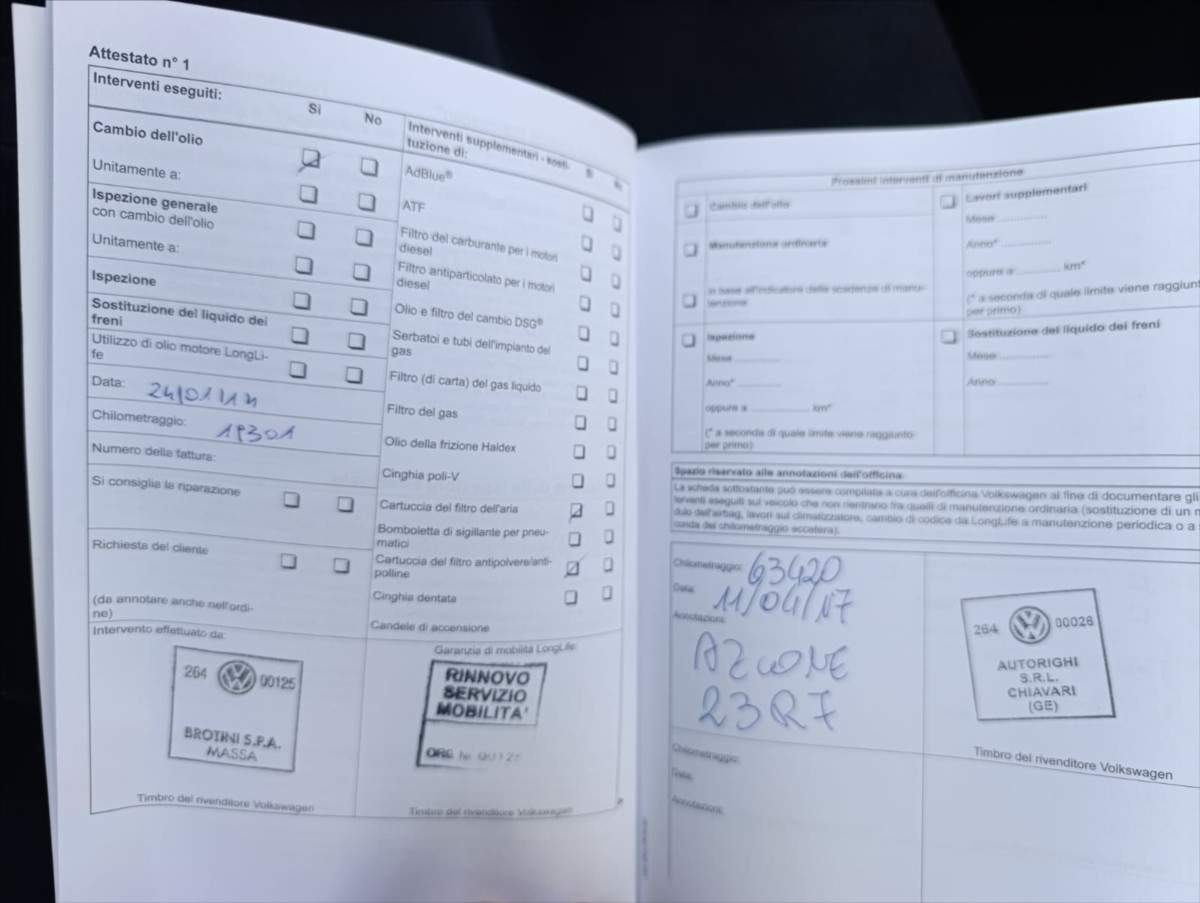 Attestato n° 1
Interventi eseguiti:
Sì No
Cambio dell'olio
Unitamente a:
Ispezione generale
con cambio dell'olio
Unitamente a:
Ispezione
Sostituzione del liquido dei
freni
Utilizzo di olio motore LongLi-
fe
Data: 24/01/14
Chilometraggio: 19301
Numero della fattura:
Si consiglia la riparazione
Richiesta del cliente
(da annotare anche nell'ordi-
ne)
Intervento effettuato da:
264 00125
BROTINI S.P.A.
MASSA
Timbro del rivenditore Volkswagen
Interventi supplementari - sosti-
tuzione di:
AdBlue®
ATF
Filtro del carburante per i motori
diesel
Filtro antiparticolato per i motori
diesel
Olio e filtro del cambio DSG®
Serbatoi e tubi dell'impianto del
gas
Filtro (di carta) del gas liquido
Filtro del gas
Olio della frizione Haldex
Cinghia poli-V
Cartuccia del filtro dell'aria
Bomboletta di sigillante per pneu-
matici
Cartuccia del filtro antipolvere/anti-
polline
Cinghia dentata
Candele di accensione
Garanzia di mobilità LongLife:
RINNOVO
SERVIZIO
MOBILITA'
ORG Nr. 00125
Timbro del rivenditore Volkswagen
Prossimi interventi di manutenzione
Cambio dell'olio
Manutenzione ordinaria
in base all'indicatore delle scadenze di manu-
tenzione
Ispezione
Mese
Anno*
oppure a km*
(* a seconda di quale limite viene raggiunto
per primo)
Lavori supplementari
Mese
Anno*
oppure a km*
(* a seconda di quale limite viene raggiunt
per primo)
Sostituzione del liquido dei freni
Mese
Anno
Spazio riservato alle annotazioni dell'officina
La scheda sottostante può essere compilata a cura dell'officina Volkswagen al fine di documentare gli
terventi eseguiti sul veicolo che non rientrano fra quelli di manutenzione ordinaria (sostituzione di un m
dulo dell'airbag, lavori sul climatizzatore, cambio di codice da LongLife a manutenzione periodica o a
conda del chilometraggio eccetera).
Chilometraggio: 63420
Data: 11/04/17
Annotazioni:
AZIONE
23R7
264 00026
AUTORIGHI
S.R.L.
CHIAVARI
(GE)
Timbro del rivenditore Volkswagen
Chilometraggio:
Data:
Annotazioni: